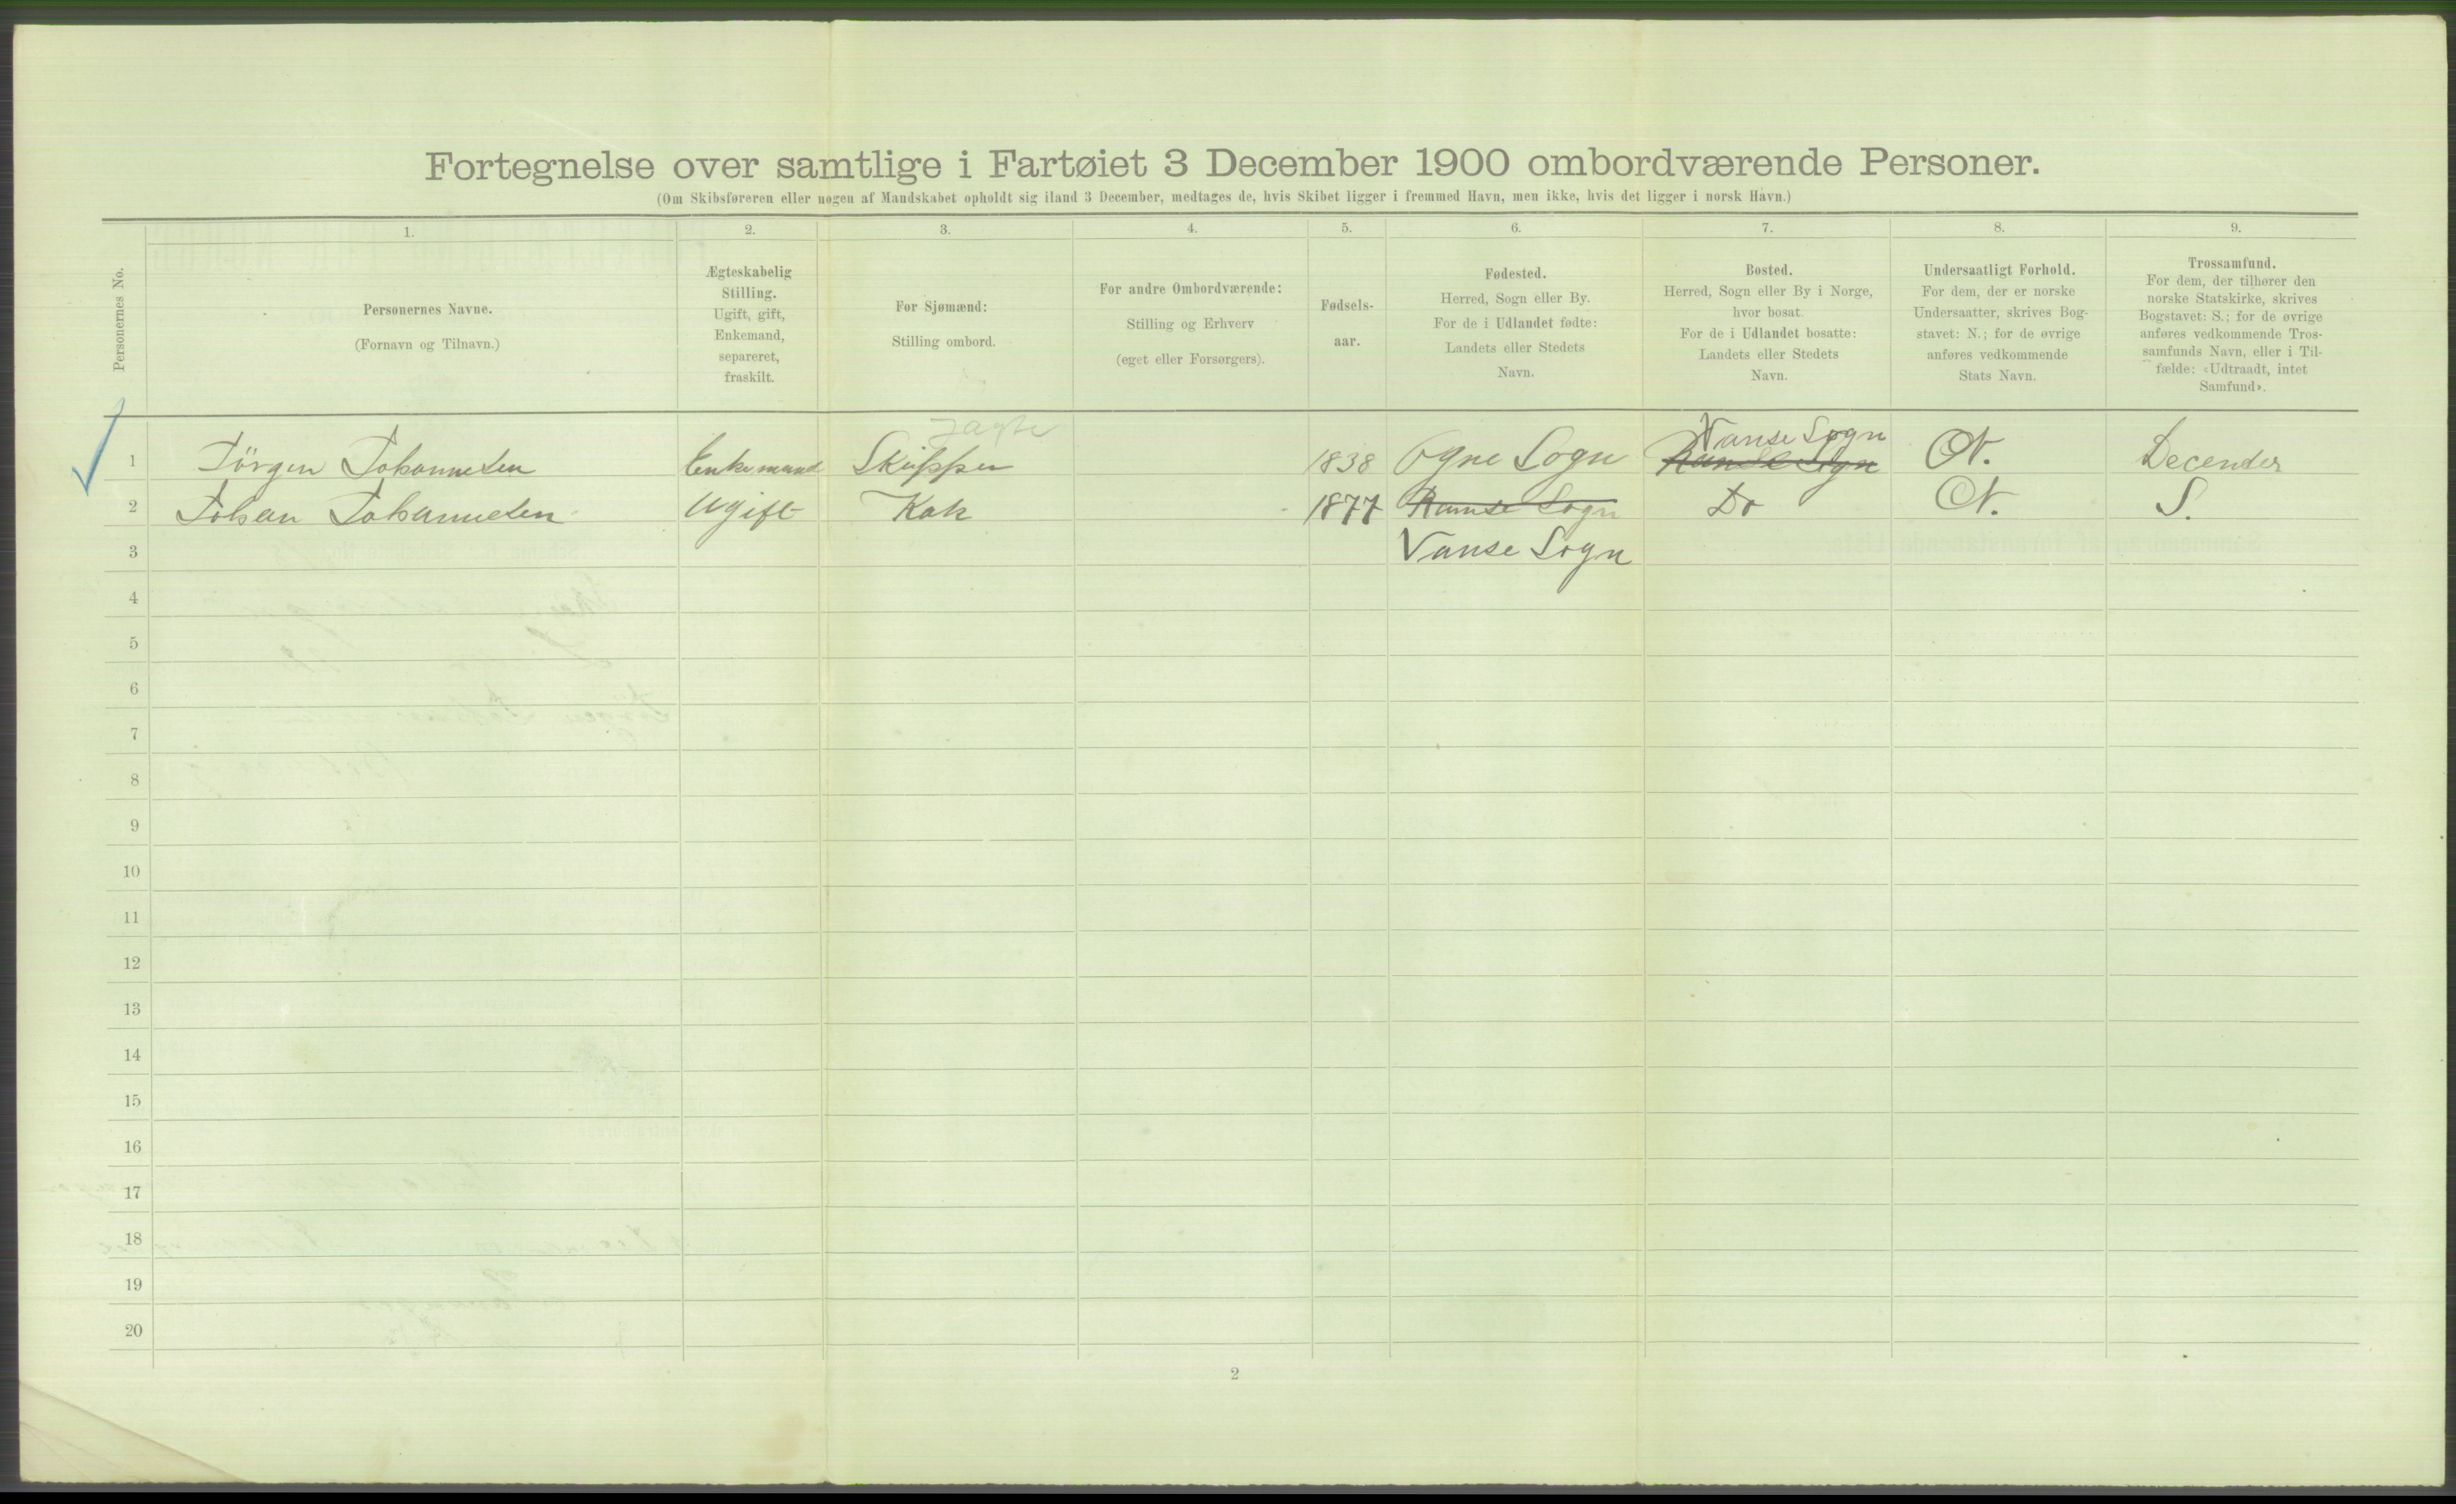 Fortegnelse over samtlige i Fartøiet 3 December 1900 ombordværende Personer.
(Om Skibsføreren eller nogen af Mandskabet opholdt sig iland 3 December, medtages de, hvis Skibet ligger i fremmed Havn, men ikke, hvis det ligger i norsk Havn.)
Personernes No.
1.
Personernes Navne.
(Fornavn og Tilnavn.)
2.
Ægteskabelig
Stilling.
Ugift, gift,
Enkemand,
separeret,
fraskilt.
3.
For Sjømænd:
Stilling ombord.
4.
For andre Ombordværende:
Stilling og Erhverv
(eget eller Forsørgers).
5.
Fødsels-
aar.
6.
Fødested.
Herred, Sogn eller By.
For de i Udlandet fødte:
Landets eller Stedets
Navn.
7.
Bosted.
Herred, Sogn eller By i Norge,
hvor bosat.
For de i Udlandet bosatte:
Landets eller Stedets
Navn.
8.
Undersaatligt Forhold.
For dem, der er norske
Undersaatter, skrives Bog-
stavet: N.; for de øvrige
anføres vedkommende
Stats Navn.
9.
Trossamfund.
For dem, der tilhører den
norske Statskirke, skrives
Bogstavet: S.; for de øvrige
anføres vedkommende Tros-
samfunds Navn, eller i Til-
fælde: «Udtraadt, intet
Samfund».
Jagte Vanse Sogn
1 Jörgen Johannesen Enkemand Skipper 1838 Ogne Sogn Ranse Sogn N. Decender
2 Johan Johannesen Ugift Kok 1877 Ranse Sogn Do N. S.
3 Vanse Sogn
4
5
6
7
8
9
10
11
12
13
14
15
16
17
18
19
20
2